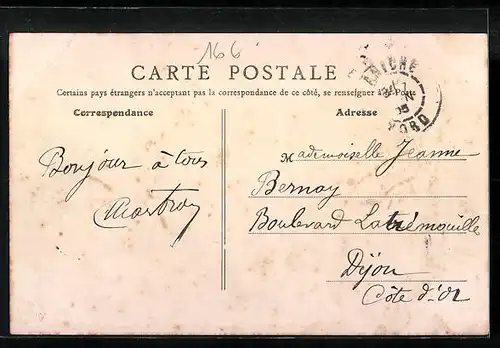 166
CARTE POSTALE
Certains pays étrangers n'acceptant pas la correspondance de ce côté, se renseigner à la Poste
Correspondance
Adresse
ANICHE
NORD
Bonjour à tous
Mademoiselle Jeanne
Bernoy
Boulevard Latrémouille
Dijon
Côte d'Or